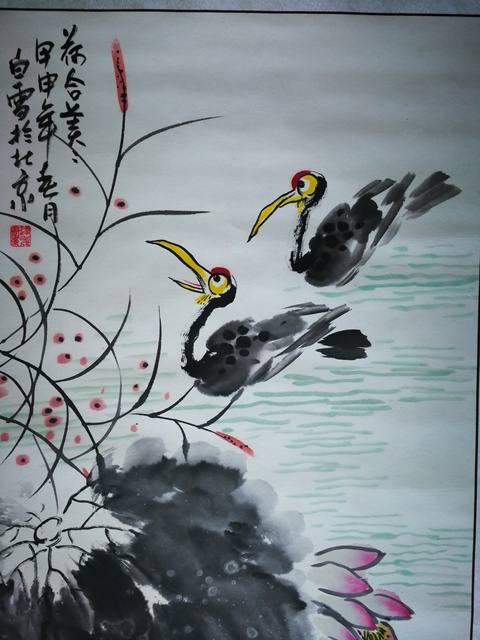 荷合美〻
甲申年春月
白雪於北京